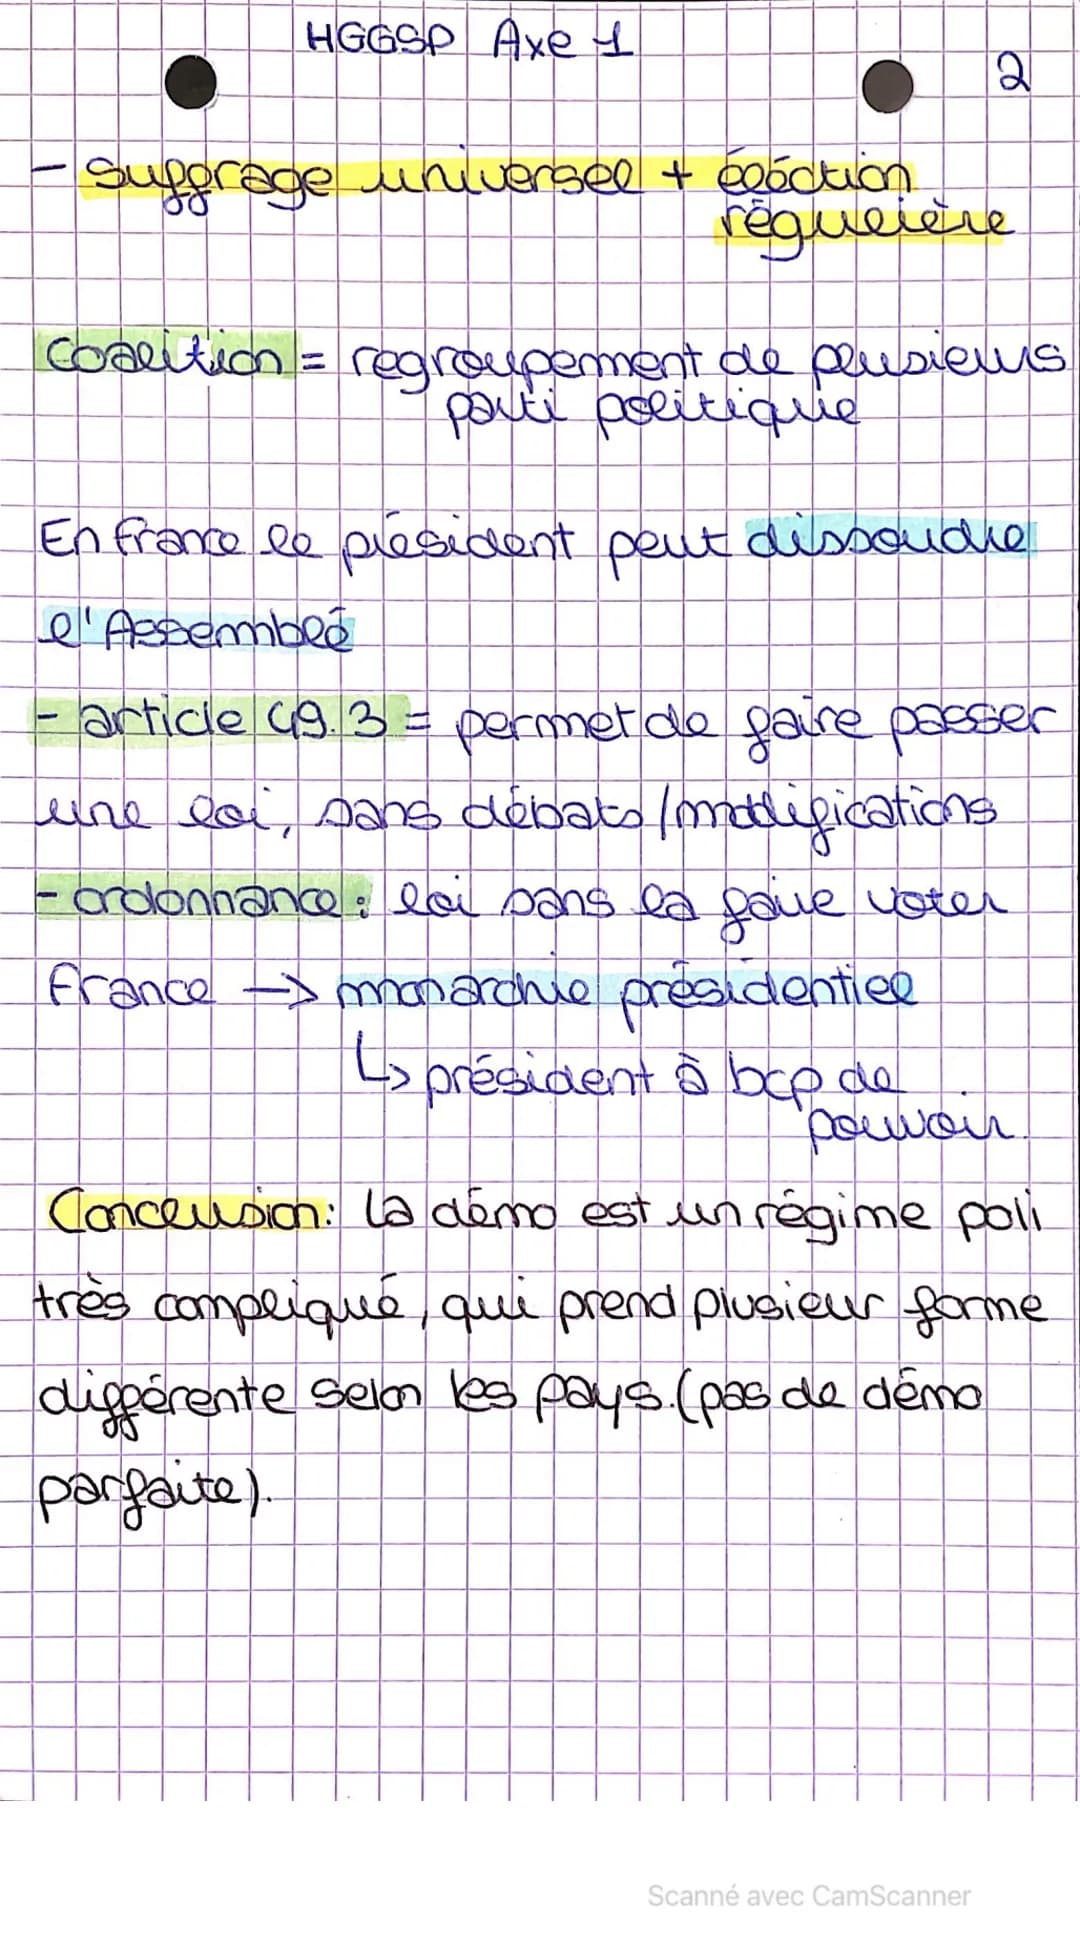 HGGSP Axe 1
2
- Suffrage universel + éléction
régulière
Coalition = regroupement de plusieurs
parti politique
En france le président peut dissoudre
l'Assembleé
- article 49.3 = permet de faire passer
une loi, sans débats/modifications
- ordonnance : loi sans la faire voter
france -> monarchie présidentiel
↳ président à bcp de
pouvoir.
Conclusion : La démo est un régime poli
très compliqué, qui prend plusieur forme
différente selon les pays. (pas de démo
parfaite).
Scanné avec CamScanner